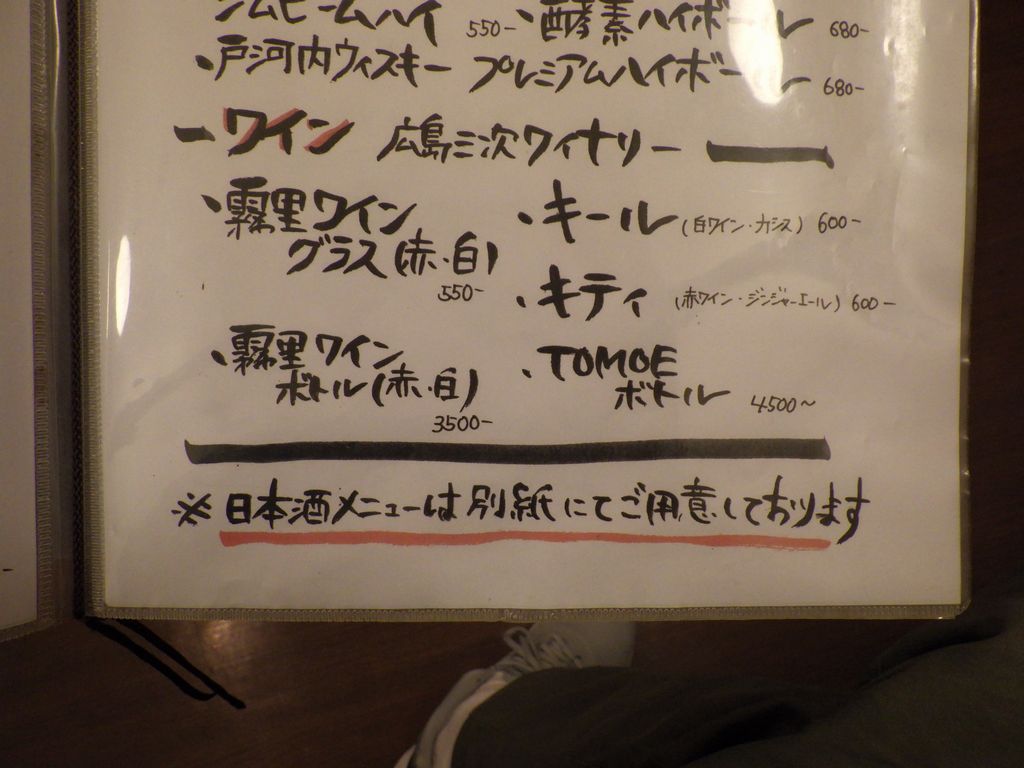 ジムビームハイ 550- ・酵素ハイボール 680-
・戸河内ウィスキー プレミアムハイボール 680-
ーワイン 広島三次ワイナリー ー
・霧里ワイン
グラス(赤・白)
550-
・キール(白ワイン・カシス) 600-
・キティ(赤ワイン・ジンジャーエール) 600-
・霧里ワイン
ボトル(赤・白)
3500-
・TOMOE
ボトル 4500~
※日本酒メニューは別紙にてご用意しております